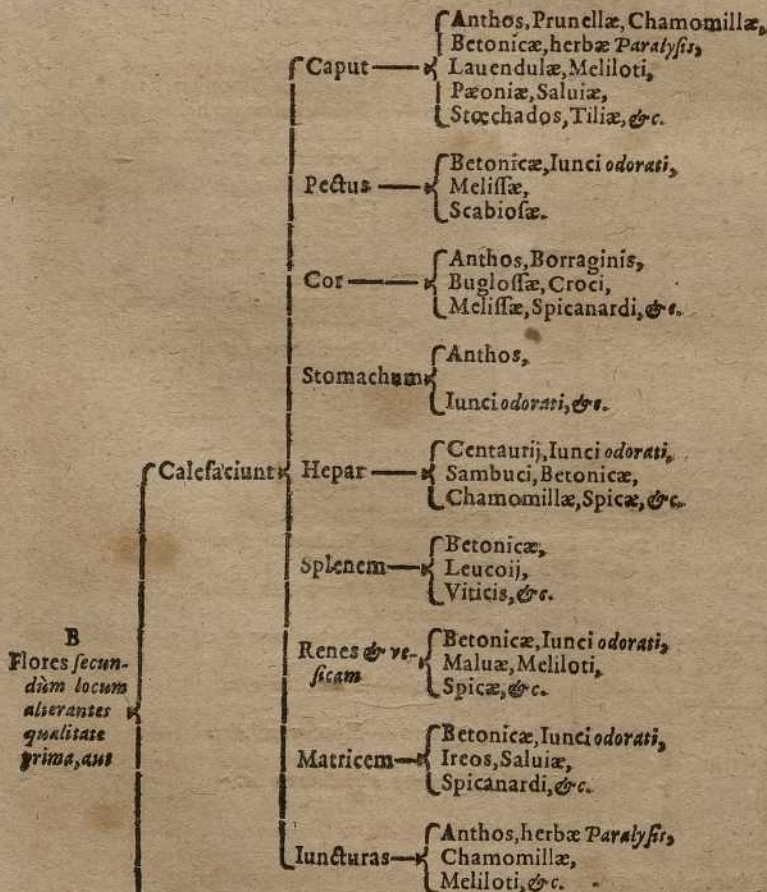 B
Flores secun-
dùm locum
alterantes
qualitate
prima, aut
Calefaciunt
Caput
Anthos, Prunellæ, Chamomillæ,
Betonicæ, herbæ Paralysis,
Lauendulæ, Meliloti,
Pæoniæ, Saluiæ,
Stœchados, Tiliæ, &c.
Pectus
Betonicæ, Iunci odorati,
Melissæ,
Scabiosæ.
Cor
Anthos, Borraginis,
Buglossæ, Croci,
Melissæ, Spicanardi, &c.
Stomachum
Anthos,
Iunci odorati, &c.
Hepar
Centaurij, Iunci odorati,
Sambuci, Betonicæ,
Chamomillæ, Spicæ, &c.
Splenem
Betonicæ,
Leucoij,
Viticis, &c.
Renes & ve-
sicam
Betonicæ, Iunci odorati,
Maluæ, Meliloti,
Spicæ, &c.
Matricem
Betonicæ, Iunci odorati,
Ireos, Saluiæ,
Spicanardi, &c.
Iuncturas
Anthos, herbæ Paralysis,
Chamomillæ,
Meliloti, &c.